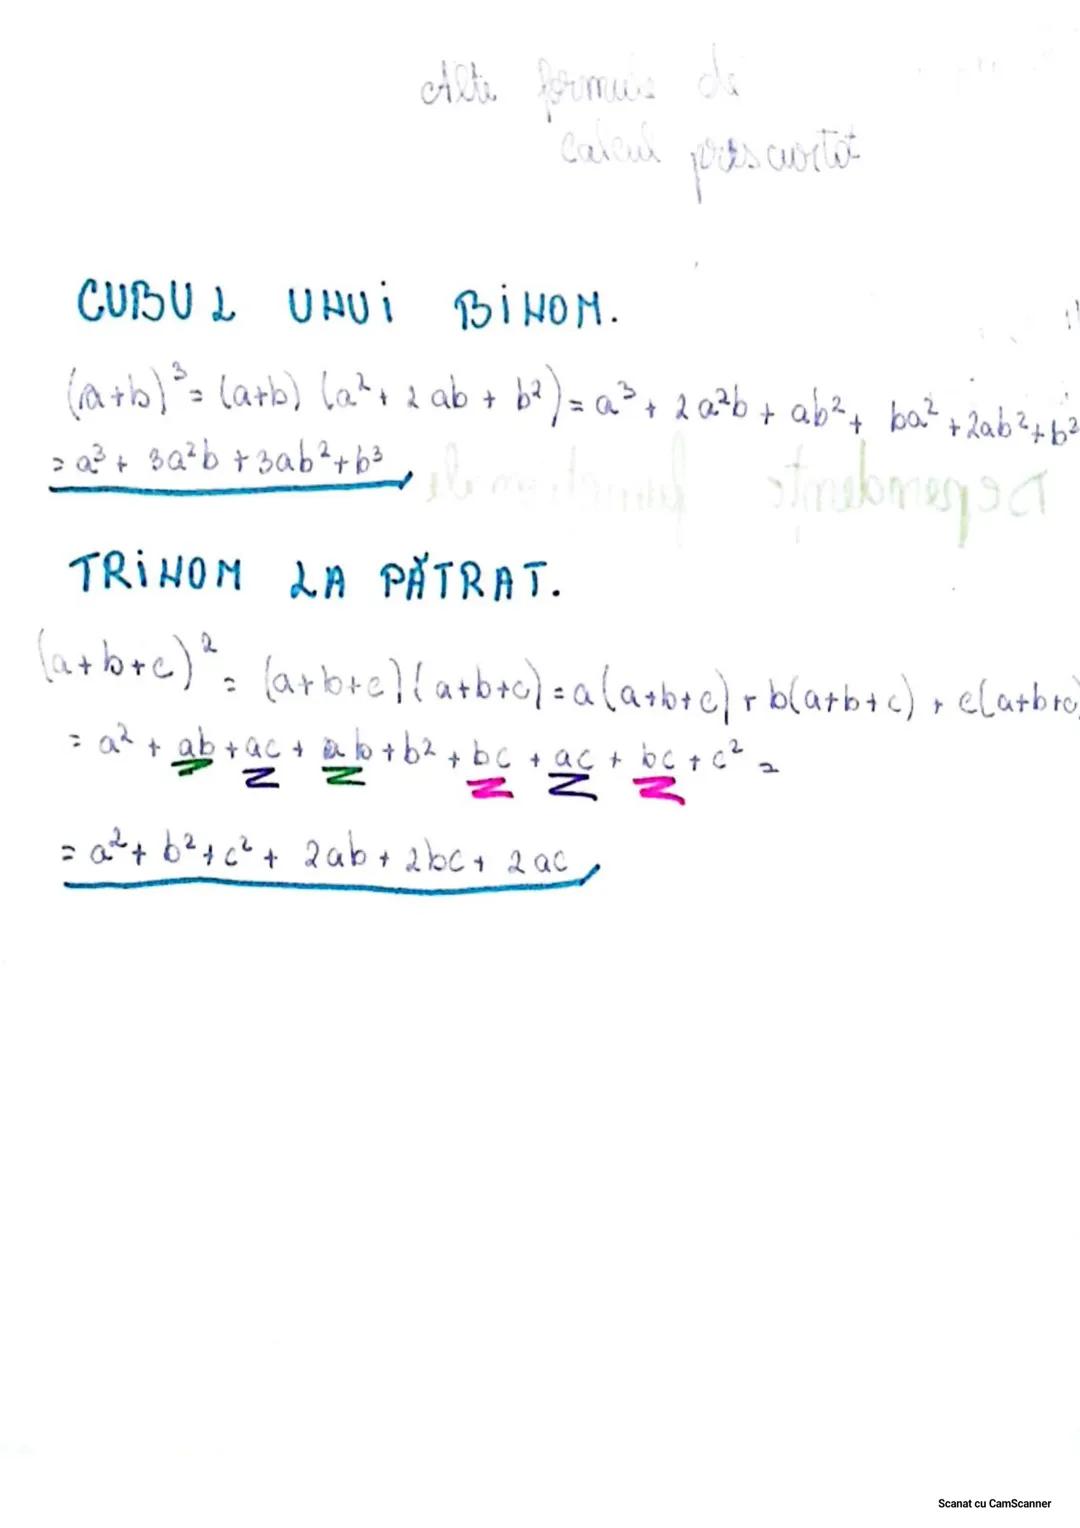 Alte formule de
calcul prescurtat
CUBUL UNUI BINOM.
(a+b)³ = (a+b) (a² + 2ab + b²) = a³ + 2a²b + ab² + ba² + 2ab² + b³
= a³ + 3a²b + 3ab² + b³
TRINOM LA PĂTRAT.
(a+b+c)² = (a+b+c)(a+b+c) = a(a+b+c) + b(a+b+c) + c(a+b+c)
= a² + ab + ac + ab + b² + bc + ac + bc + c² =
= a² + b² + c² + 2ab + 2bc + 2ac
Scanat cu CamScanner